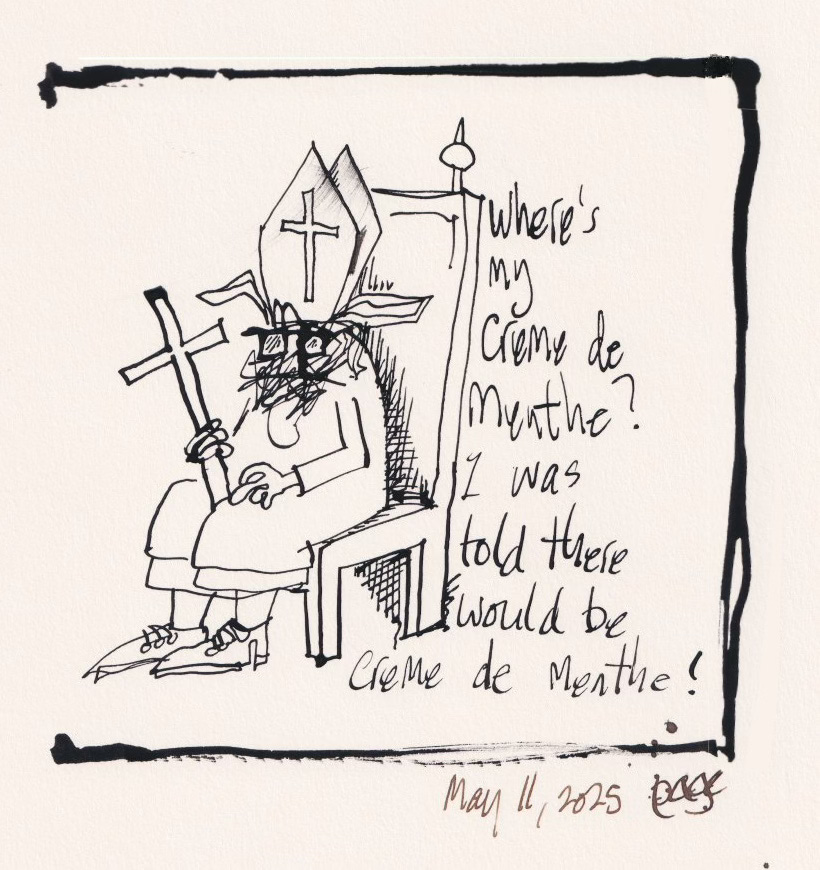 Where's
my
Creme de
Menthe?
I was
told there
would be
Creme de Menthe!
May 11, 2025